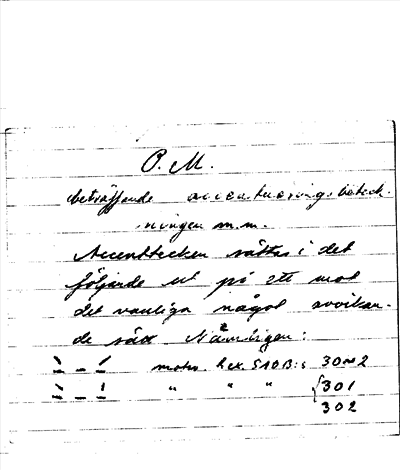 P. M.
beträffande accentueringsbeteck-
ningen m.m.
Accenttecken sättas i det
följande ut på ett mot
det vanliga något avvikan-
de sätt. Nämligen:
motsv. t.ex. SAOB:s 30~2
" " " { 301
302